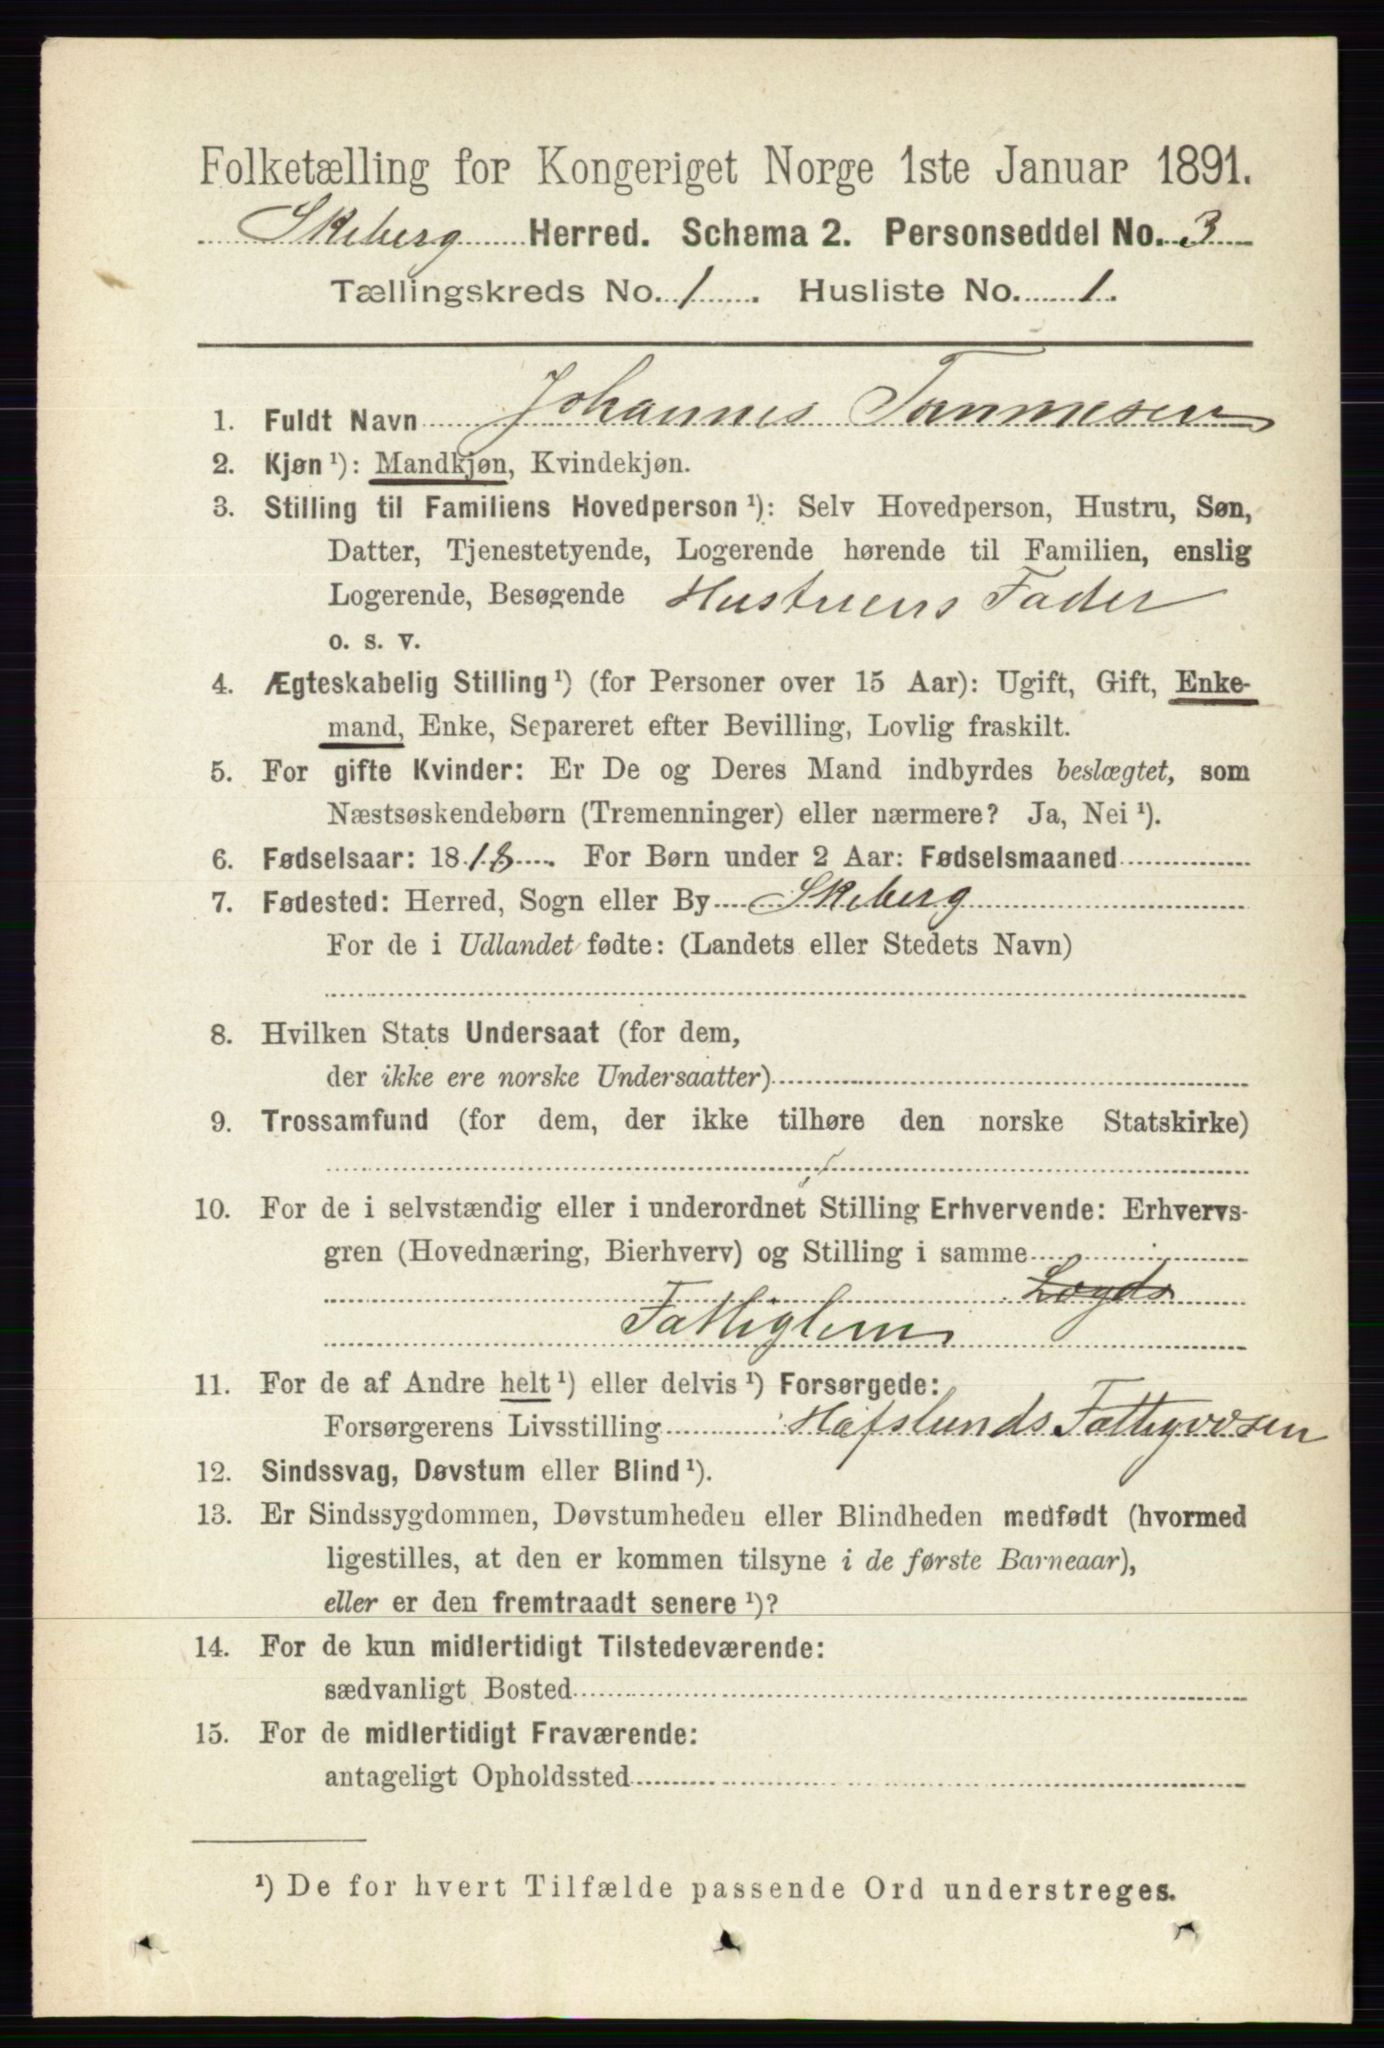 Folketælling for Kongeriget Norge 1ste Januar 1891.
Skeberg Herred. Schema 2. Personseddel No. 3
Tællingskreds No. 1. Husliste No. 1.
1. Fuldt Navn Johannes Tommesen
2. Kjøn ¹): Mandkjøn, Kvindekjøn.
3. Stilling til Familiens Hovedperson ¹): Selv Hovedperson, Hustru, Søn,
Datter, Tjenestetyende, Logerende hørende til Familien, enslig
Logerende, Besøgende Hustruens Fader
o. s. v.
4. Ægteskabelig Stilling ¹) (for Personer over 15 Aar): Ugift, Gift, Enke-
mand, Enke, Separeret efter Bevilling, Lovlig fraskilt.
5. For gifte Kvinder: Er De og Deres Mand indbyrdes beslægtet, som
Næstsøskendebørn (Tremenninger) eller nærmere? Ja, Nei ¹).
6. Fødselsaar: 1818. For Børn under 2 Aar: Fødselsmaaned
7. Fødested: Herred, Sogn eller By Skeberg
For de i Udlandet fødte: (Landets eller Stedets Navn)
8. Hvilken Stats Undersaat (for dem,
der ikke ere norske Undersaatter)
9. Trossamfund (for dem, der ikke tilhøre den norske Statskirke)
10. For de i selvstændig eller i underordnet Stilling Erhvervende: Erhvervs-
gren (Hovednæring, Bierhverv) og Stilling i samme
Lægds
Fattiglem
11. For de af Andre helt ¹) eller delvis ¹) Forsørgede:
Forsørgerens Livsstilling Hafslunds Fattigvæsen
12. Sindssvag, Døvstum eller Blind ¹).
13. Er Sindssygdommen, Døvstumheden eller Blindheden medfødt (hvormed
ligestilles, at den er kommen tilsyne i de første Barneaar),
eller er den fremtraadt senere ¹)?
14. For de kun midlertidigt Tilstedeværende:
sædvanligt Bosted
15. For de midlertidigt Fraværende:
antageligt Opholdssted
¹) De for hvert Tilfælde passende Ord understreges.